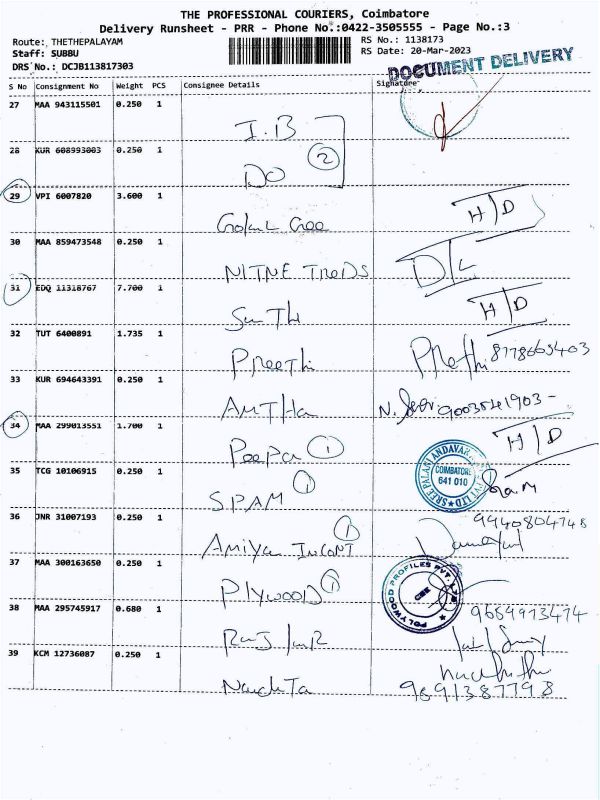 THE PROFESSIONAL COURIERS, Coimbatore
Delivery Runsheet - PRR - Phone No.:0422-3505555 - Page No.:3
Route: THETHEPALAYAM
RS No.: 1138173
Staff: SUBBU
RS Date: 20-Mar-2023
DRS No.: DCJB113817303
DOCUMENT DELIVERY
S No Consignment No Weight PCS Consignee Details Signature
27 MAA 943115501 0.250 1 I.B
28 KUR 608993003 0.250 1 DO 2
29 VPI 6007820 3.600 1 H/D
30 MAA 859473548 0.250 1 NITNE D/L
31 EDQ 11318767 7.700 1 H/D
32 TUT 6400891 1.735 1 Preethi 8778665403
33 KUR 694643391 0.250 1 9003541903 -
34 MAA 299013551 1.700 1 1 H/D
35 TCG 10106915 0.250 1 SPAM 1
SREE PALANI ANDAVAR PVT LTD COIMBATORE 641 010
36 JNR 31007193 0.250 1 Amiya 1 9940804748
37 MAA 300163650 0.250 1 PLYWOOD 1
POLYWOOD PROFILES PVT. LTD. CBE
38 MAA 295745917 0.680 1 9659973474
39 KCM 12736087 0.250 1 9691387798